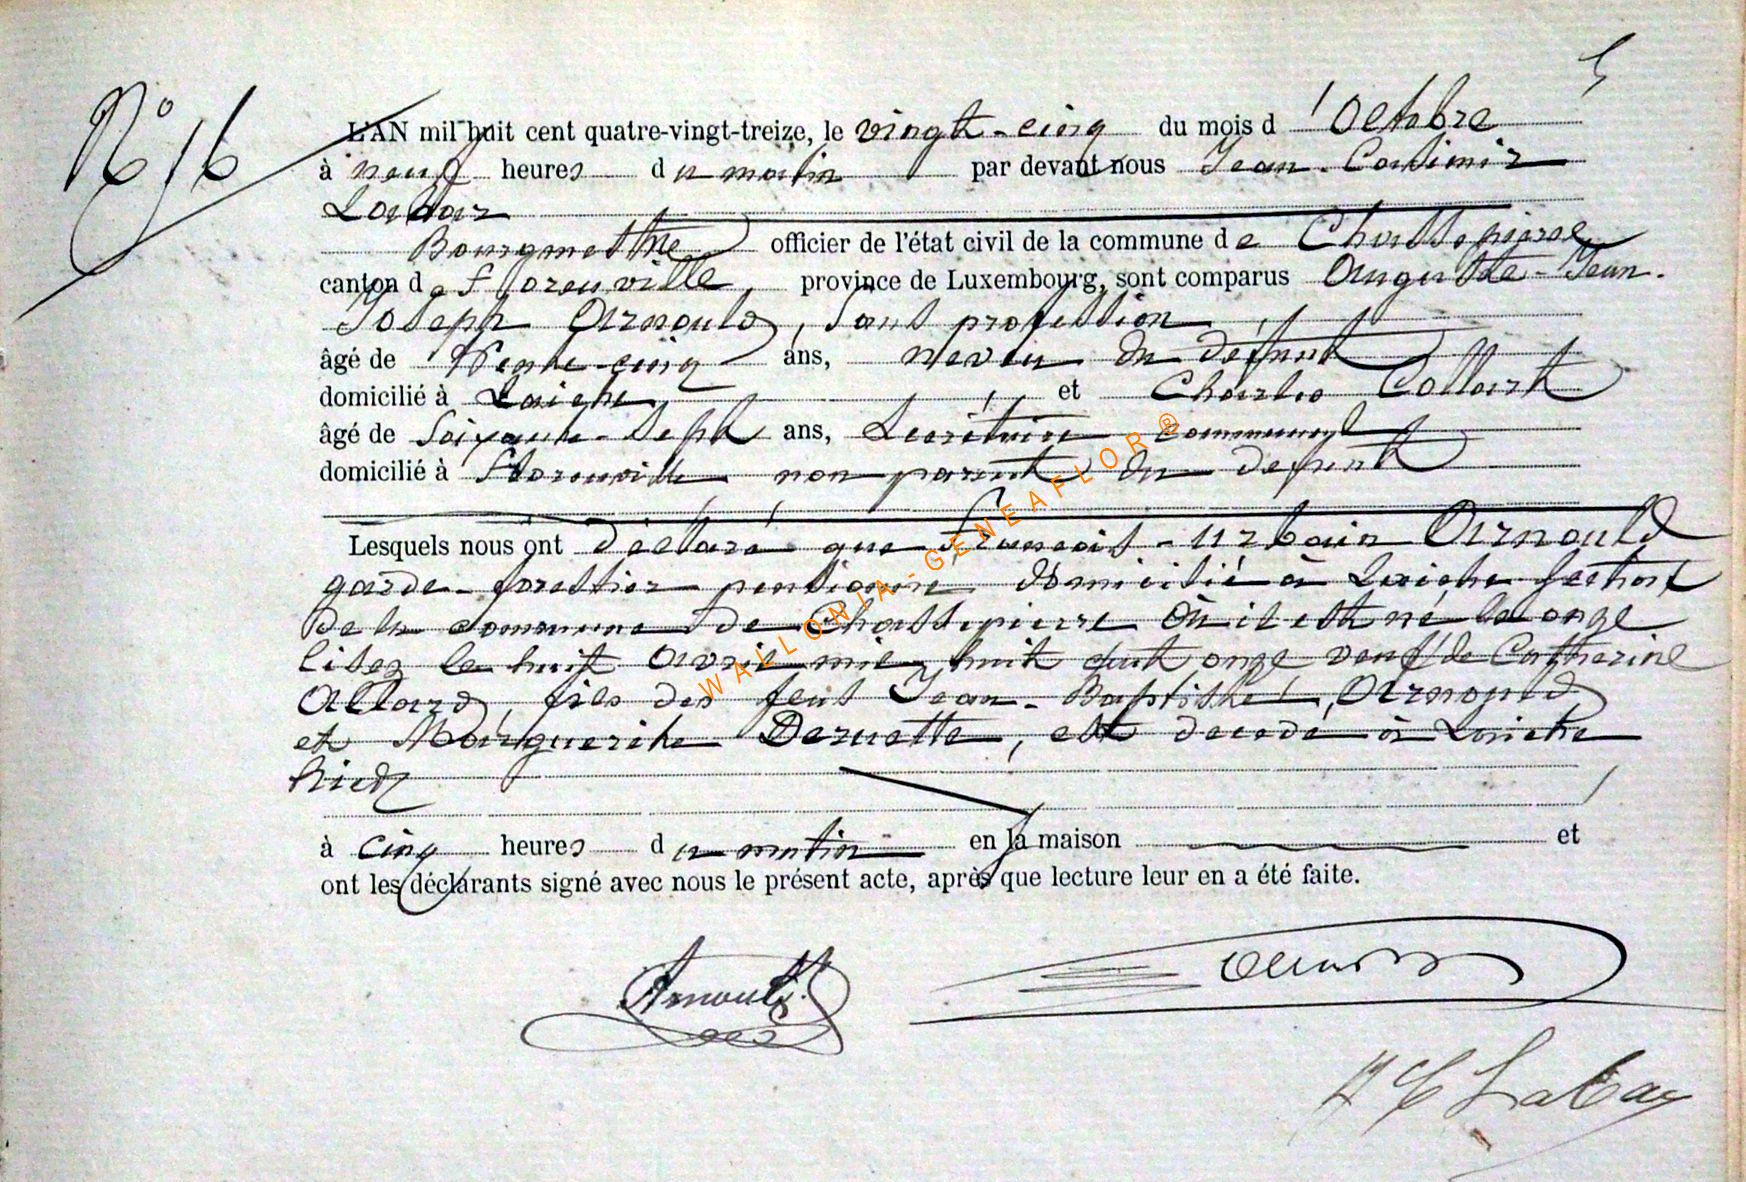 N° 16
L'AN mil huit cent quatre-vingt-treize, le vingt-cinq du mois d'Octobre
à neuf heures du matin par devant nous Jean-Casimir
Labbaz
Bourgmestre officier de l'état civil de la commune de Chassepierre
canton de Florenville, province de Luxembourg, sont comparus Auguste-Jean-
Joseph Arnould, sans profession
âgé de trente-cinq ans, neveu du défunt
domicilié à Laiche et Charles Collart
âgé de soixante-sept ans, secrétaire communal
domicilié à Florenville non parent du défunt
Lesquels nous ont déclaré que François-Urbain Arnould
garde-forestier pensionné domicilié à Laiche section
de la commune de Chassepierre où il est né le onze
lisez le huit Avril mil huit cent onze veuf de Catherine
Allard, fils des feus Jean-Baptiste Arnould
et Marguerite Deruette, est décédé à Laiche
hier
à cinq heures du matin en la maison et
ont les déclarants signé avec nous le présent acte, après que lecture leur en a été faite.
Arnould
WALLONIA-GENEAFLOR®